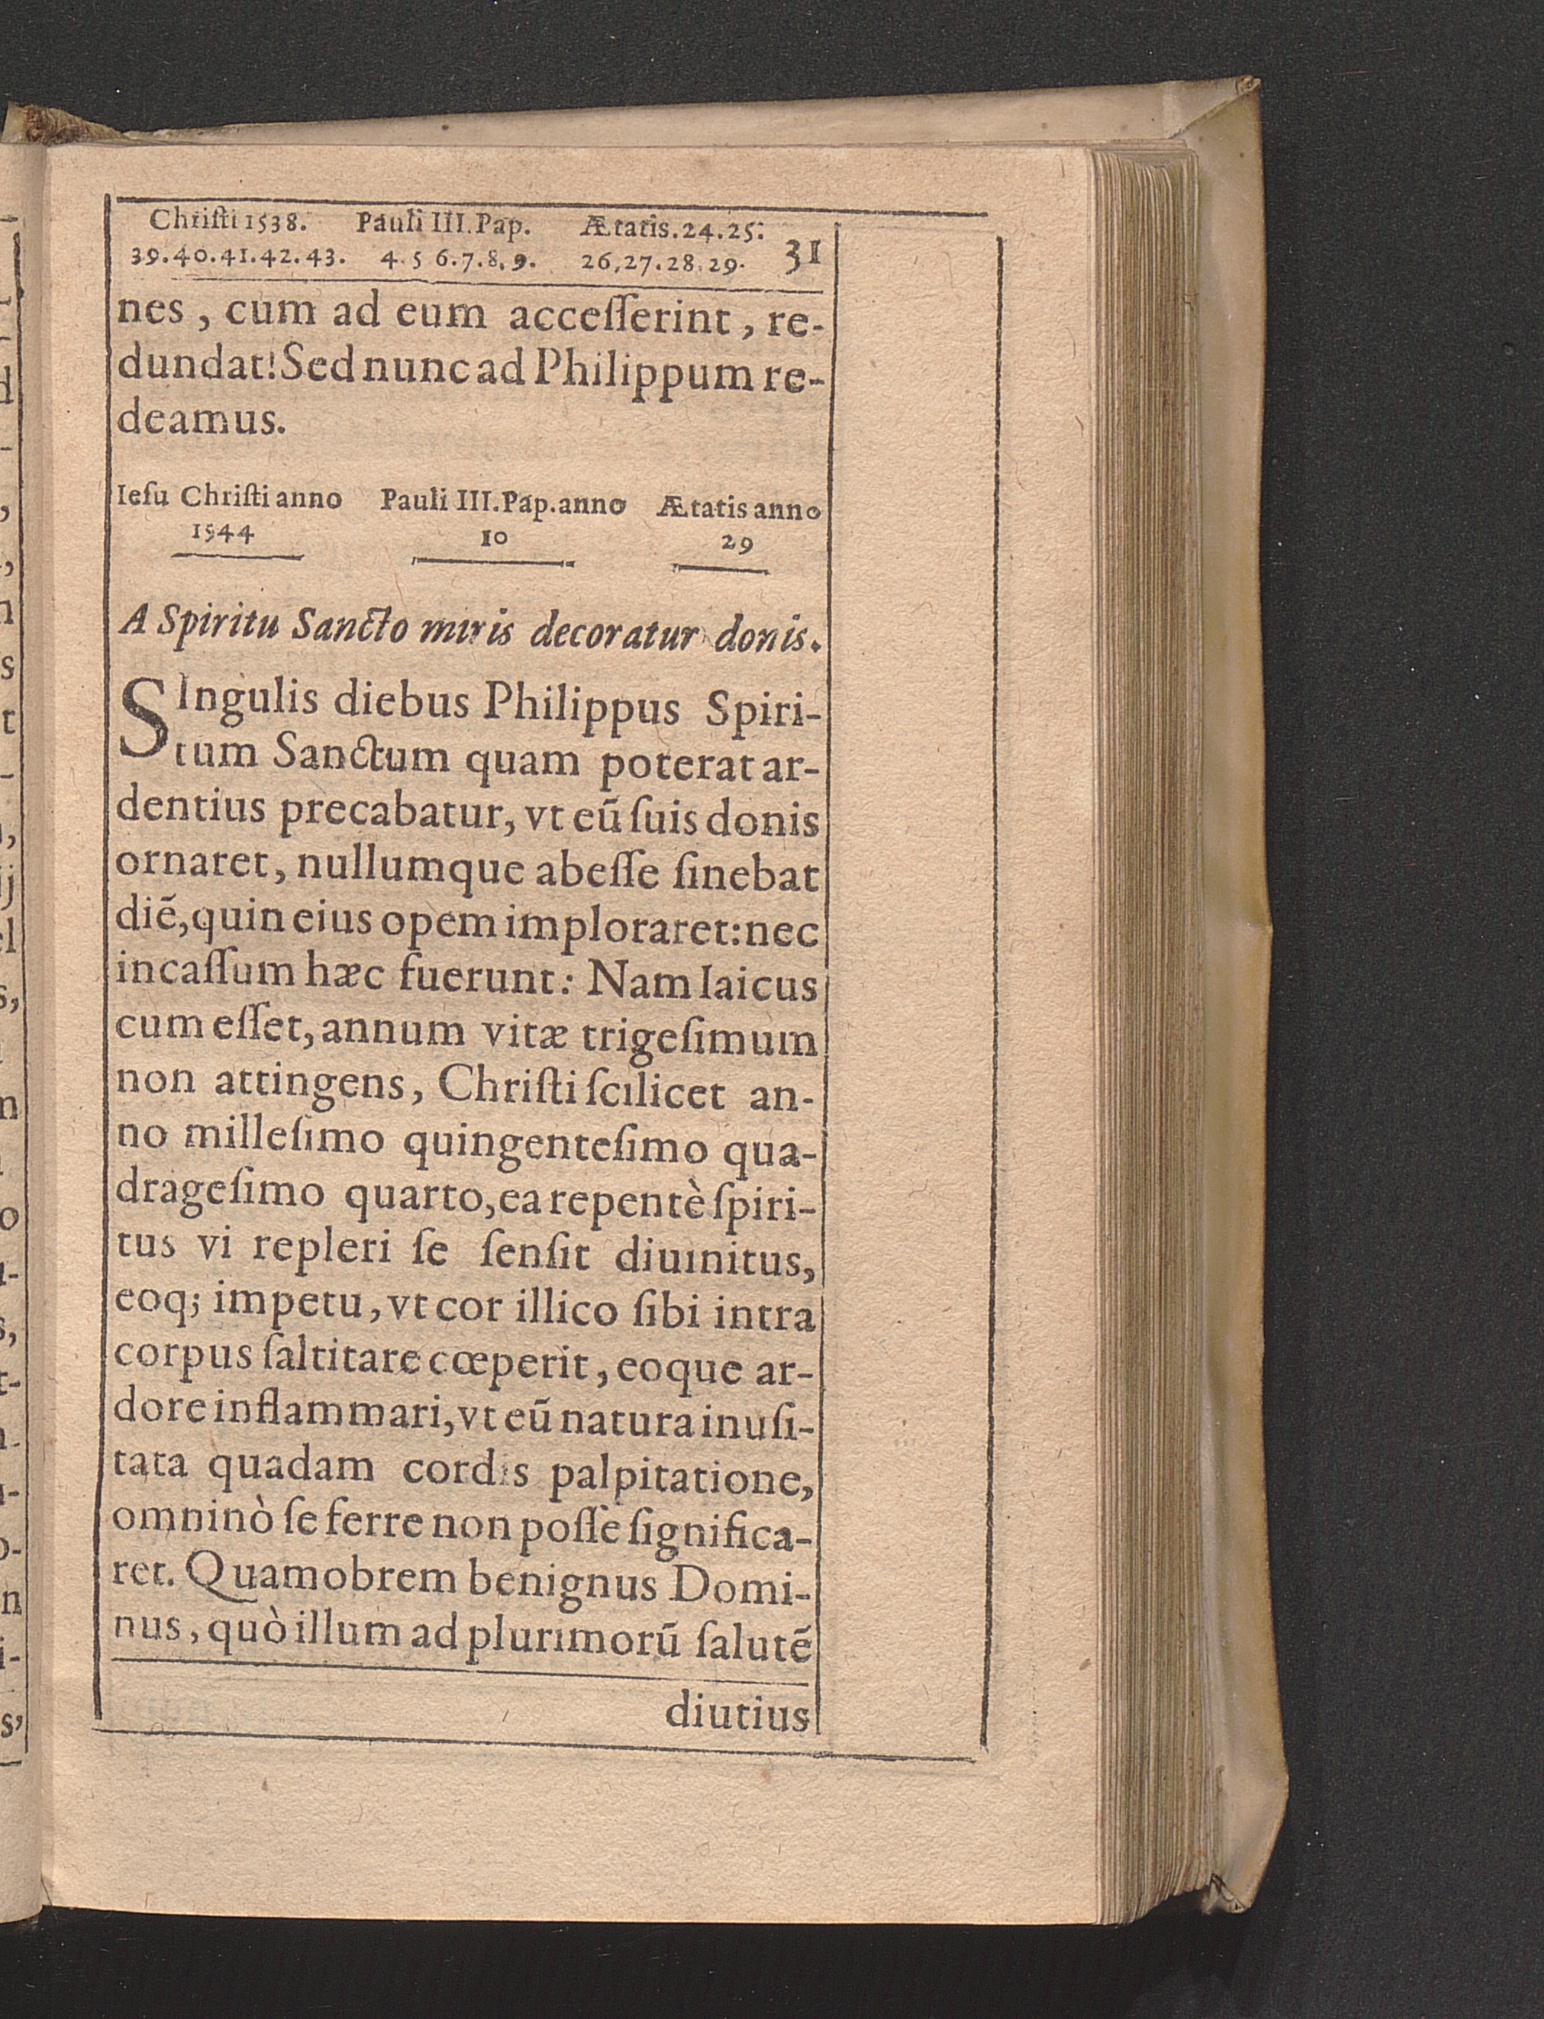 Chriſti 1538. Pauli III. Pap. Ætatis. 24. 25.
39. 40. 41. 42. 43. 4. 5 6. 7. 8. 9. 26, 27. 28. 29. 31
nes, cum ad eum acceſſerint, re-
dundat! Sed nunc ad Philippum re-
deamus.
Ieſu Chriſti anno Pauli III. Pap. anno Ætatis anno
1544 10 29
A Spiritu Sancto miris decoratur donis.
SIngulis diebus Philippus Spiri-
tum Sanctum quam poterat ar-
dentius precabatur, vt eū ſuis donis
ornaret, nullumque abeſſe ſinebat
diē, quin eius opem imploraret: nec
incaſſum hæc fuerunt: Nam laicus
cum eſſet, annum vitæ trigeſimum
non attingens, Chriſti ſcilicet an-
no milleſimo quingenteſimo qua-
drageſimo quarto, ea repentè ſpiri-
tus vi repleri ſe ſenſit diuinitus,
eoq; impetu, vt cor illico ſibi intra
corpus ſaltitare cœperit, eoque ar-
dore inflammari, vt eū natura inuſi-
tata quadam cordis palpitatione,
omninò ſe ferre non poſſe ſignifica-
ret. Quamobrem benignus Domi-
nus, quò illum ad plurimorū ſalutē
diutius